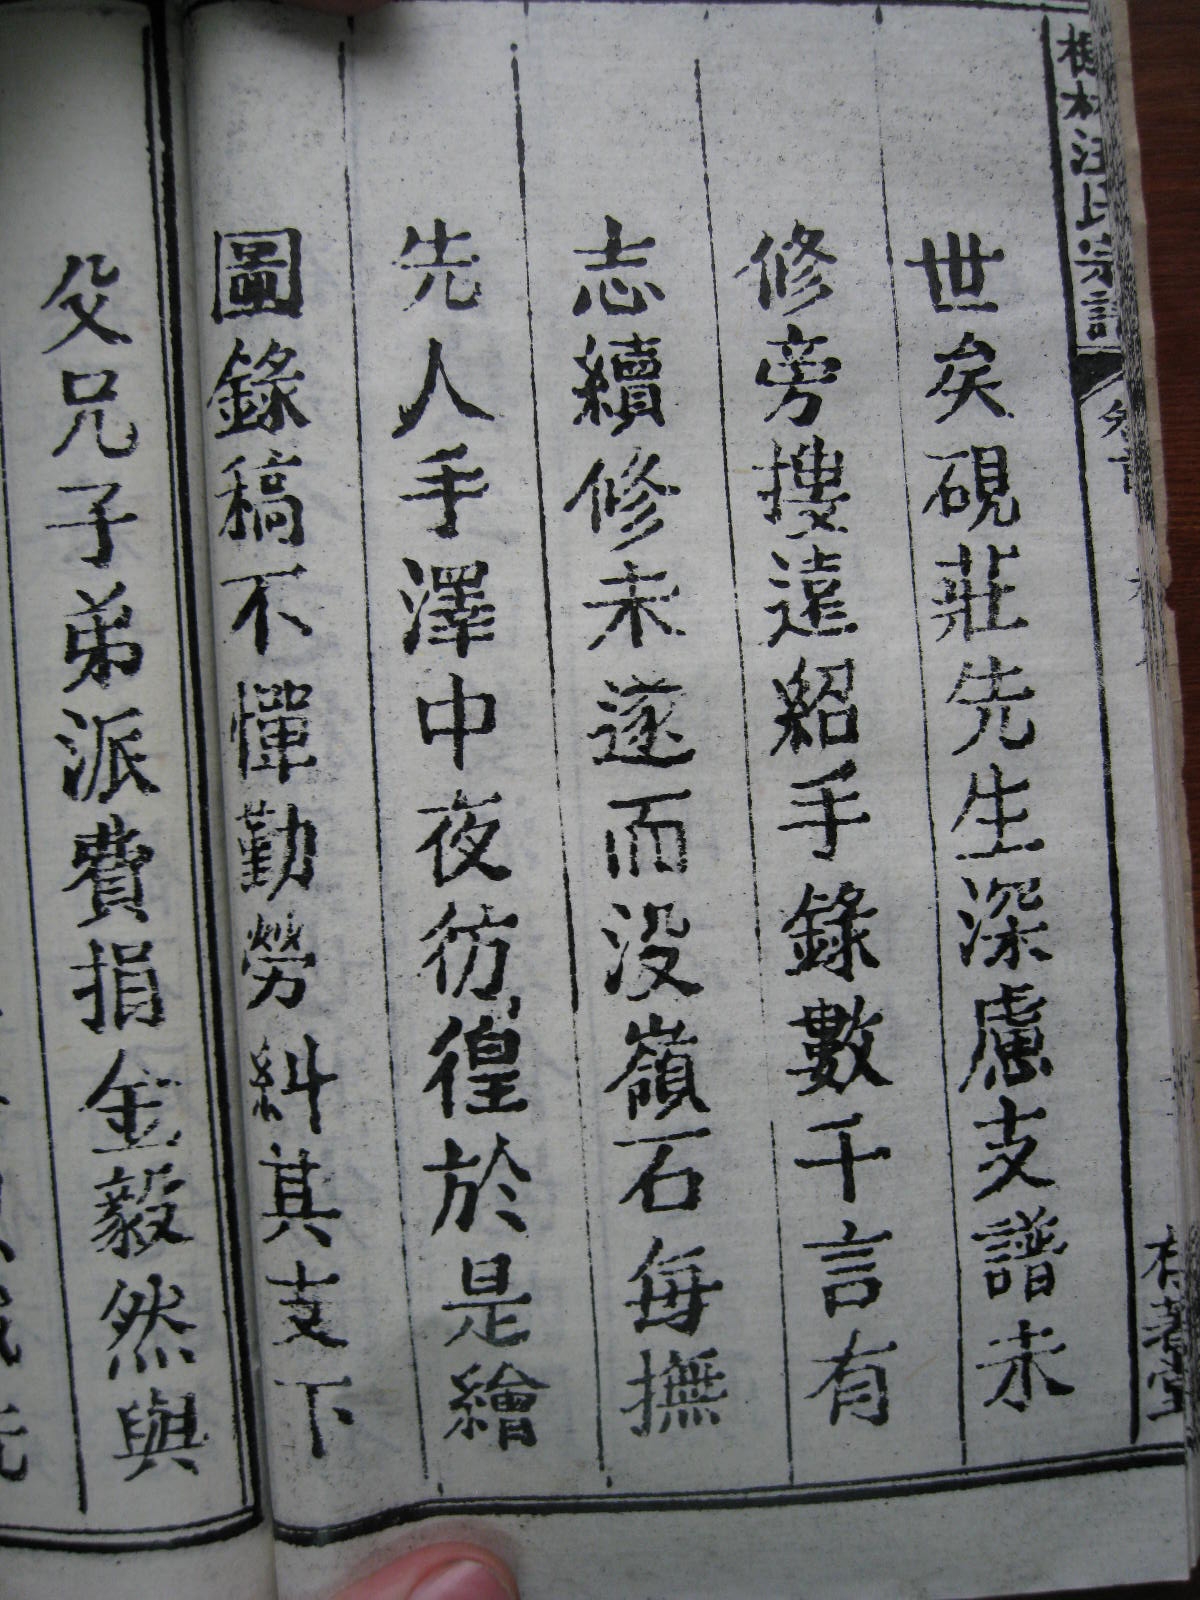 世矣硯莊先生深慮支譜未
修旁搜遠紹手錄數千言有
志續修未遂而没嶺石每撫
先人手澤中夜彷徨於是繪
圖錄稿不憚勤勞糾其支下
父兄子弟派費捐金毅然與